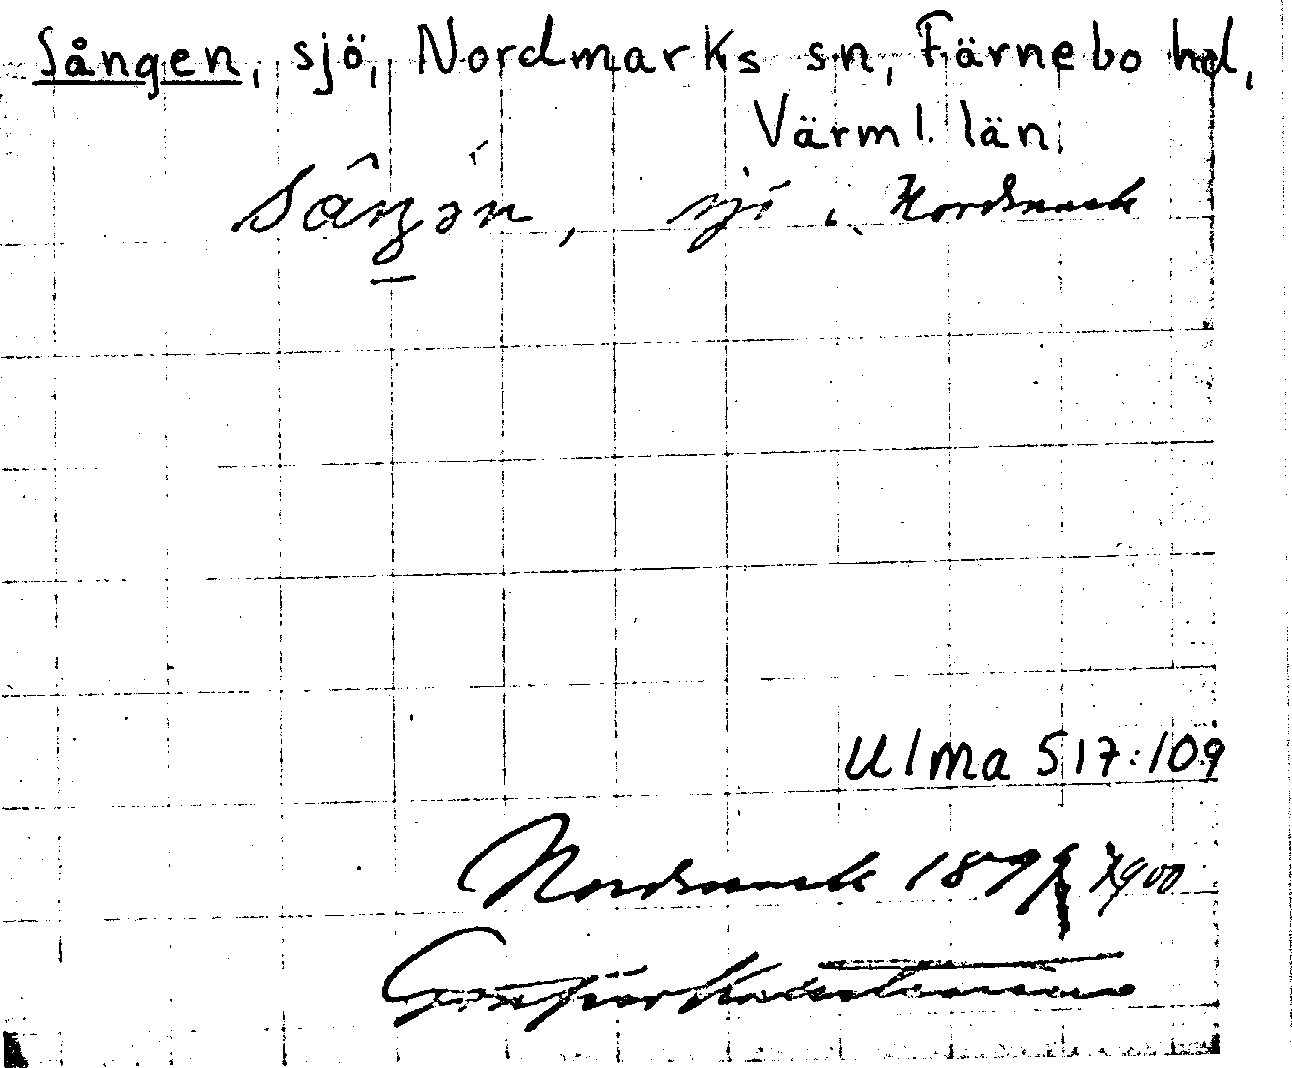 Sången, sjö, Nordmarks sn, Färnebo hd,
Värml. län.
sjö i Nordmark
Ulma 517:109
Nordmark 1900